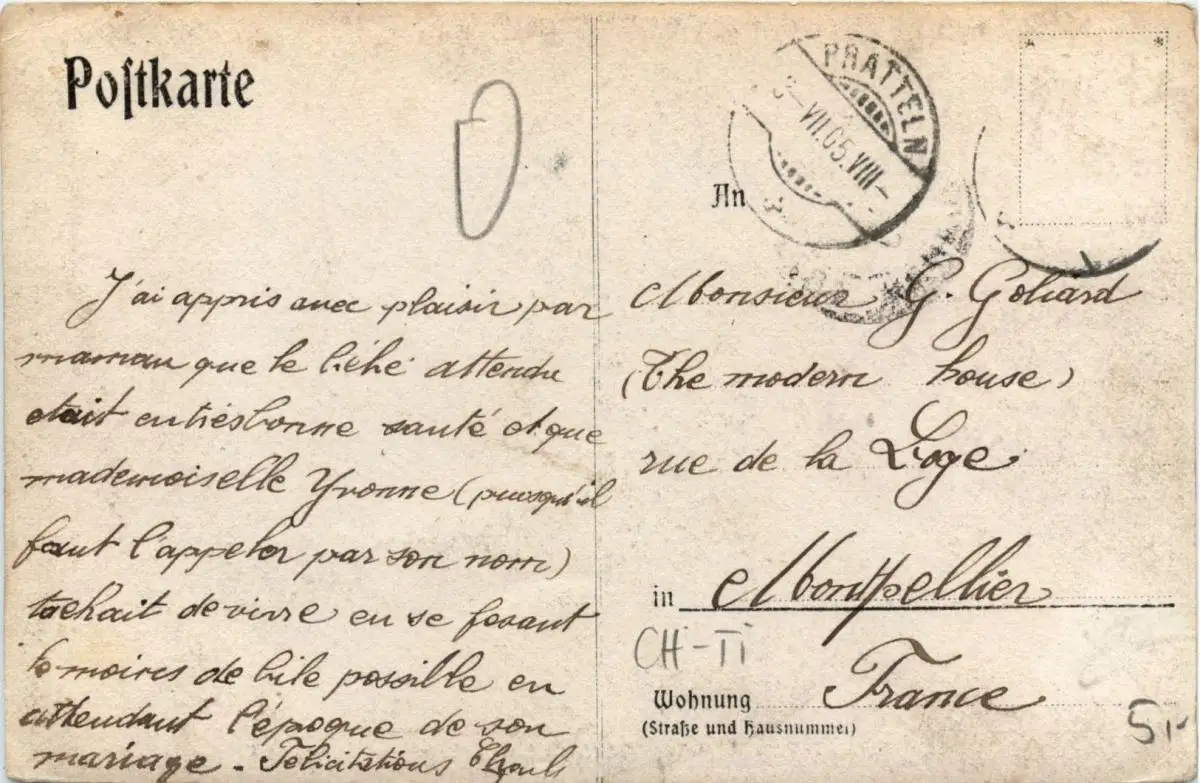 Postkarte
PRATTELN
VII.05.VIII
An
J'ai appris avec plaisir par
maman que le bébé attendu
etait en très bonne santé et que
mademoiselle Yvonne (puisqu'il
faut l'appeler par son nom)
tachait de vivre en se fesant
le moires de bile possible en
attendant l'époque de son
mariage - Félicitations
Monsieur G. Goliard
(The modern house)
rue de la Loge
in Montpellier
CH-TI
Wohnung France
(Straße und Hausnummer)
5.-